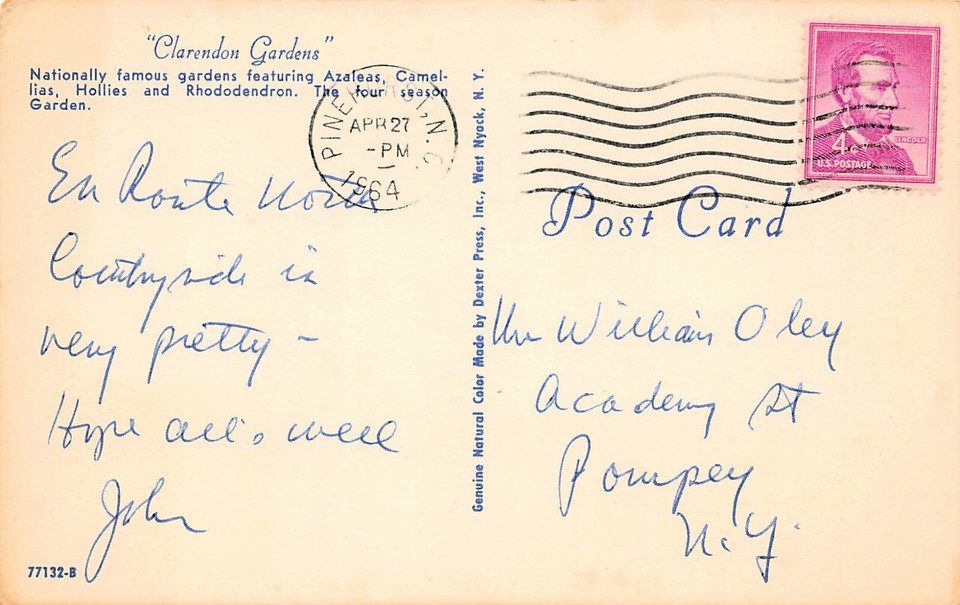 "Clarendon Gardens"
Nationally famous gardens featuring Azaleas, Camel-
lias, Hollies and Rhododendron. The four season
Garden.
PINEHURST, N.C.
APR 27
-PM
1964
En Route North
Countryside is
very pretty -
Hope all's well
John
77132-B
Genuine Natural Color Made by Dexter Press, Inc., West Nyack, N. Y.
LINCOLN
4c
U.S. POSTAGE
Post Card
Mr William Oley
Academy St
Pompey
N.Y.